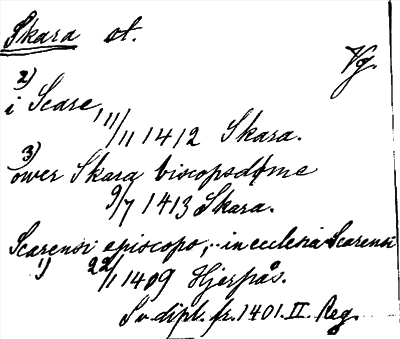 Skara st.
Vg.
2)
i Scare, 11/11 1412 Skara.
3)
ower Skara biscopsdøme
9/7 1413 Skara.
Scarensi episcopo, .. in ecclesia Scarensi
1) 22/1 1409 Hjerpås.
Sv. dipl. fr. 1401. II. Reg.